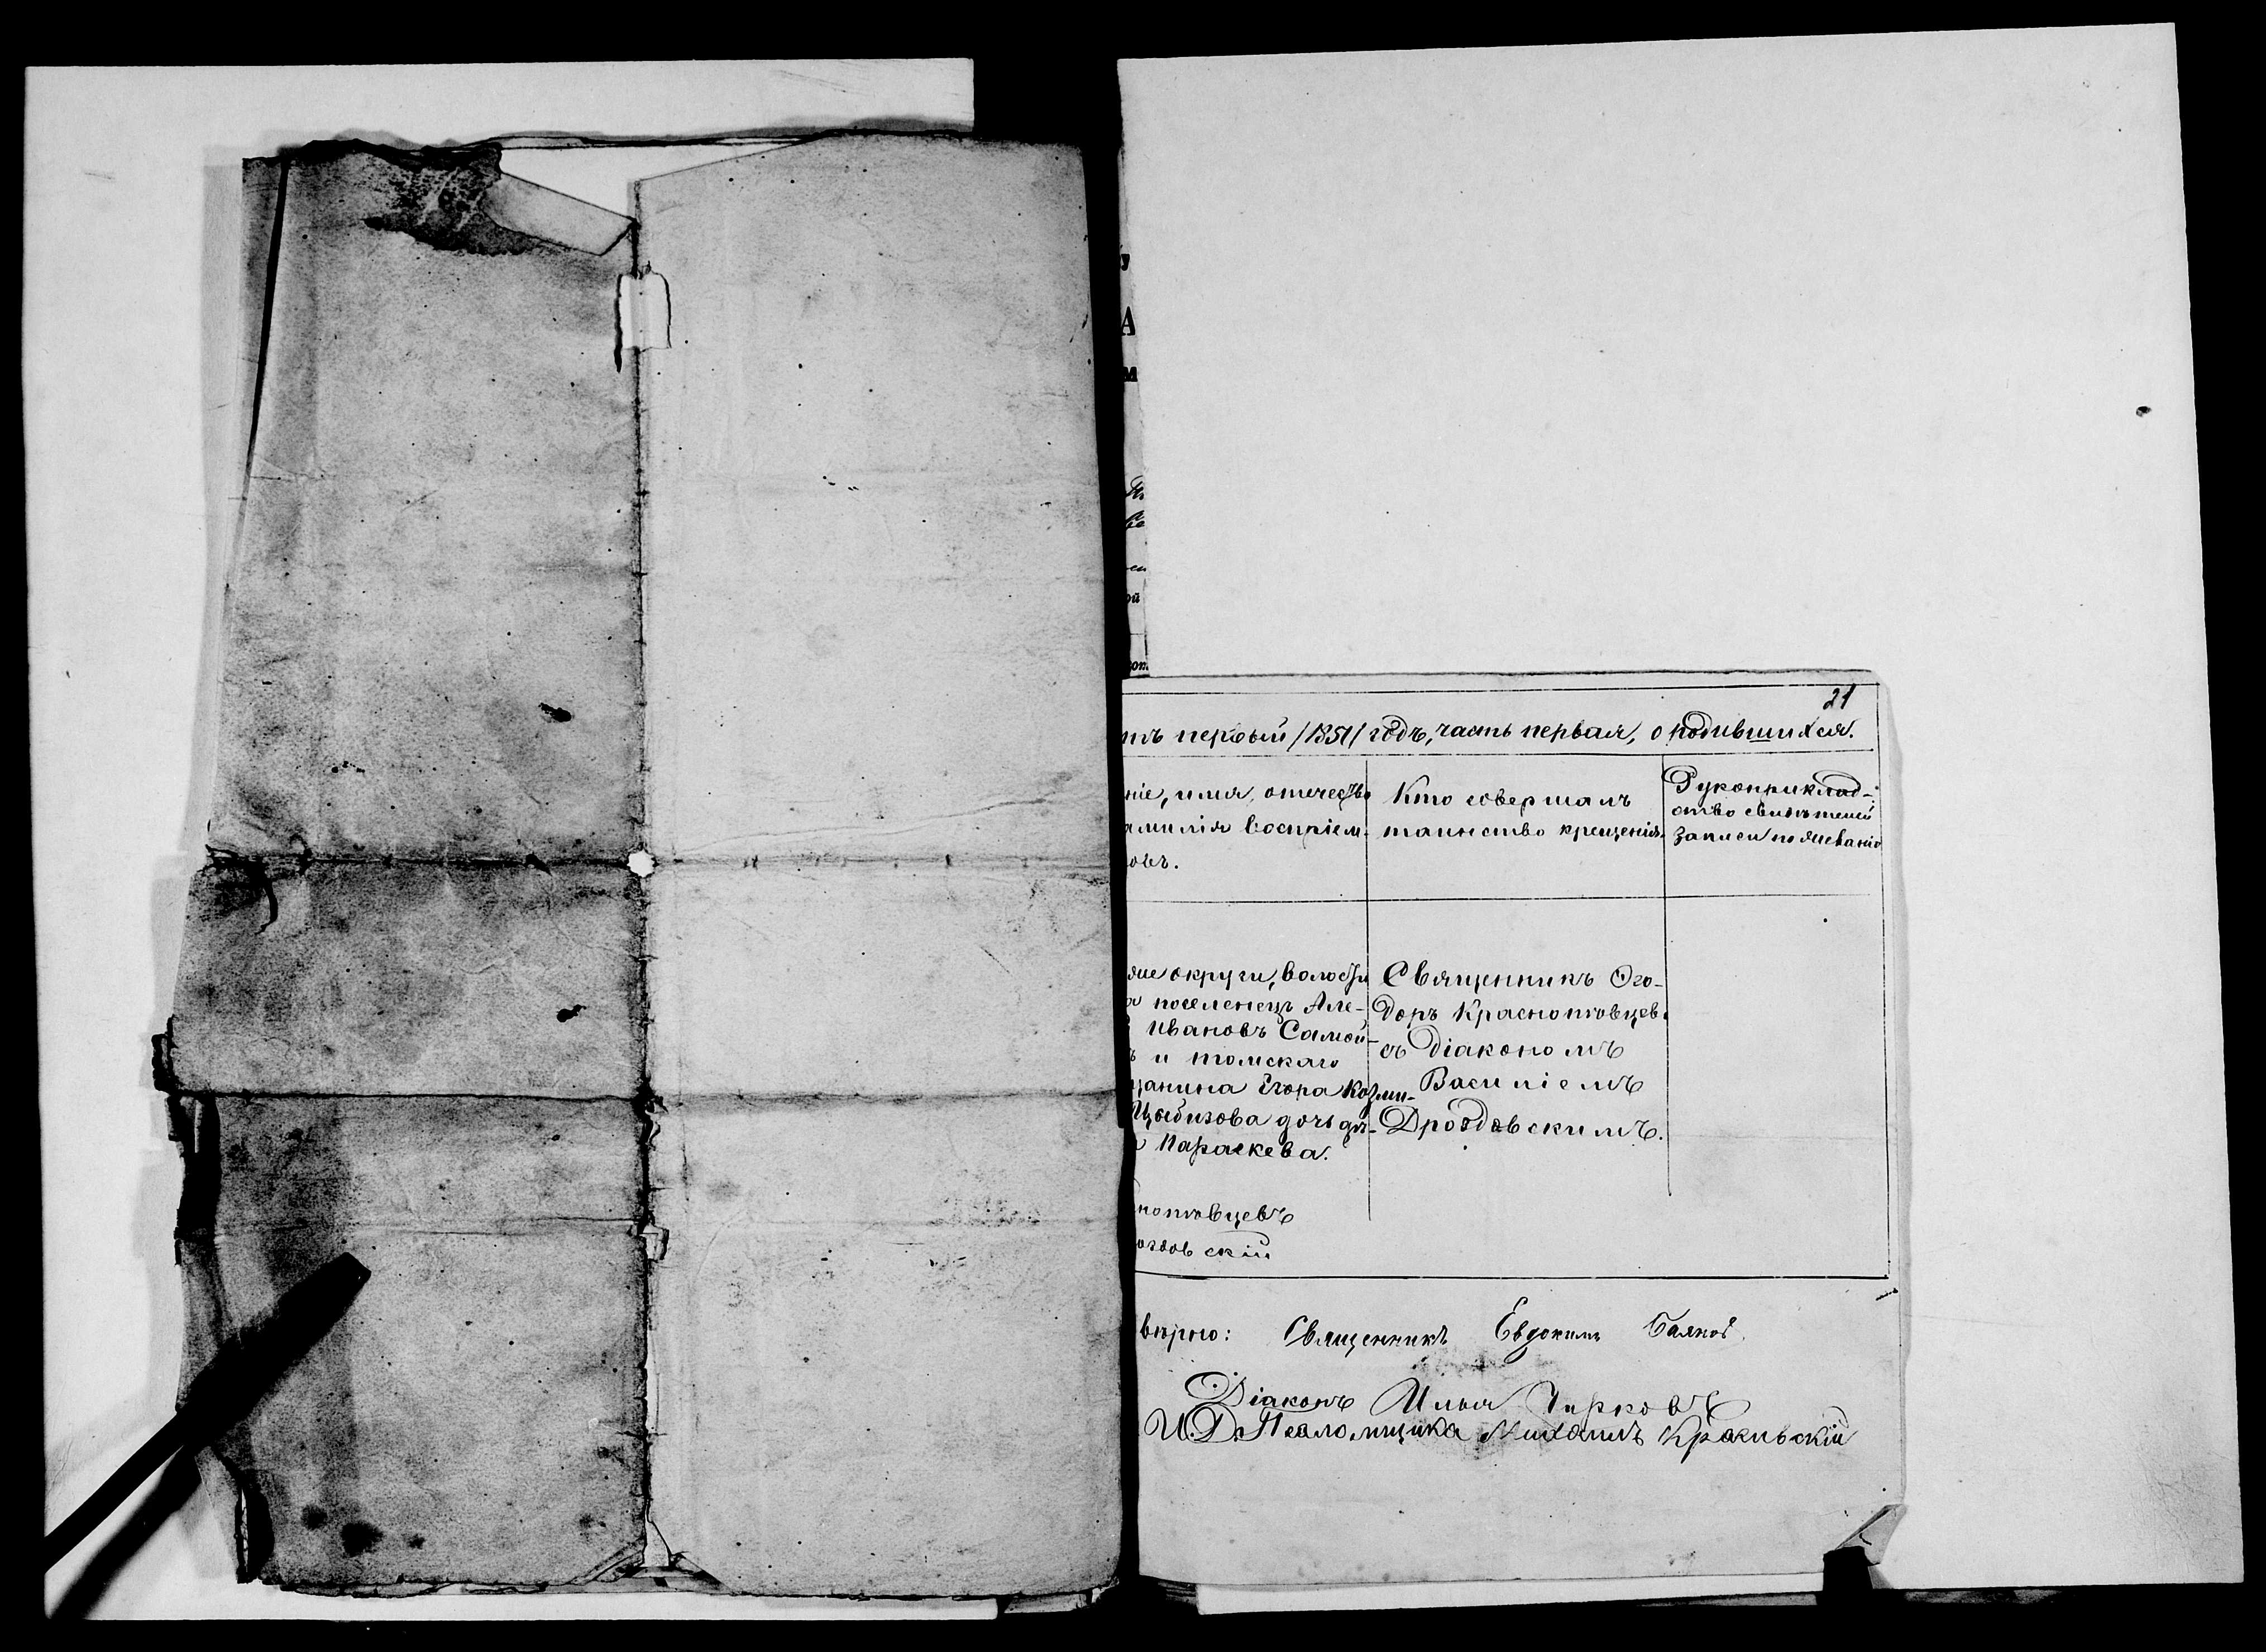 21
тъ первый /1851/ годъ, часть первая, о родившихся.
ніе, имя, отечество
амилія воспріем-
овъ.
Кто совершалъ
таинство крещенія.
Рукоприклад-
ство свидѣтелей
записи по желанію
округи, волости
поселенецъ Але-
Ивановъ Самой-
ъ и томскаго
щанина Егора Козми-
Цыбизова дочь дѣ-
Параскева.
Священникъ Ѳео-
доръ Краснопѣвцевъ
съ діакономъ
Василіемъ
Дроздовскимъ.
нопѣвцевъ
оздовскій
вѣрно: Священникъ Евдокимъ
Діаконъ Илья Чирковъ
И.Д. Псаломщика Михаилъ
А
м
ой